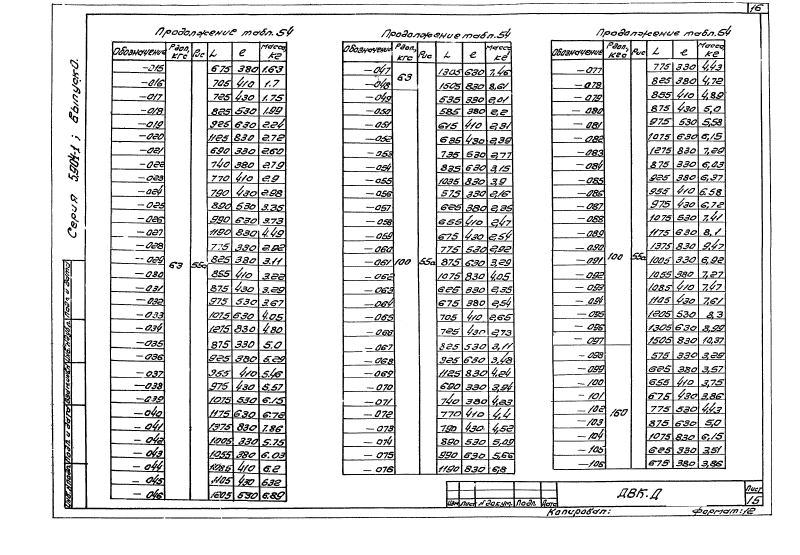 16
Серия 5.904-1; Выпуск 0.
Продолжение табл. 54
Обозначение Рдоп, кгс Рис L e Масса, кг
63 55а
-015 675 380 1.63
-016 705 410 1.7
-017 725 430 1.75
-018 825 530 1.99
-019 925 630 2.24
-020 1125 830 2.72
-021 690 330 2.60
-022 740 380 2.79
-023 770 410 2.9
-024 790 430 2.98
-025 890 530 3.35
-026 990 630 3.73
-027 1190 830 4.49
-028 775 330 2.92
-029 825 380 3.11
-030 855 410 3.22
-031 875 430 3.29
-032 975 530 3.67
-033 1075 630 4.05
-034 1275 830 4.80
-035 875 330 5.0
-036 925 380 5.29
-037 955 410 5.46
-038 975 430 5.57
-039 1075 530 6.15
-040 1175 630 6.72
-041 1375 830 7.86
-042 1005 330 5.75
-043 1055 380 6.03
-044 1085 410 6.2
-045 1105 430 6.32
-046 1205 530 6.89
Продолжение табл. 54
Обозначение Рдоп, кгс Рис L e Масса, кг
63
-047 1305 630 7.46
-048 1505 830 8.61
100 55а
-049 535 330 2.01
-050 585 380 2.2
-051 615 410 2.31
-052 635 430 2.39
-053 735 530 2.77
-054 835 630 3.15
-055 1035 830 3.9
-056 575 330 2.16
-057 625 380 2.35
-058 655 410 2.47
-059 675 430 2.54
-060 775 530 2.92
-061 875 630 3.29
-062 1075 830 4.05
-063 625 330 2.35
-064 675 380 2.54
-065 705 410 2.65
-066 725 430 2.73
-067 825 530 3.11
-068 925 630 3.48
-069 1125 830 4.24
-070 690 330 3.94
-071 740 380 4.23
-072 770 410 4.4
-073 790 430 4.52
-074 890 530 5.09
-075 990 630 5.66
-076 1190 830 6.8
Продолжение табл. 54
Обозначение Рдоп, кгс Рис L e Масса, кг
100 55а
-077 775 330 4.43
-078 825 380 4.72
-079 855 410 4.89
-080 875 430 5.0
-081 975 530 5.58
-082 1075 630 6.15
-083 1275 830 7.29
-084 875 330 6.03
-085 925 380 6.37
-086 955 410 6.58
-087 975 430 6.72
-088 1075 530 7.41
-089 1175 630 8.1
-090 1375 830 9.47
-091 1005 330 6.92
-092 1055 380 7.27
-093 1085 410 7.47
-094 1105 430 7.61
-095 1205 530 8.3
-096 1305 630 8.99
-097 1505 830 10.37
160
-098 575 330 3.29
-099 625 380 3.57
-100 655 410 3.75
-101 675 430 3.86
-102 775 530 4.43
-103 875 630 5.0
-104 1075 830 6.15
-105 625 330 3.51
-106 675 380 3.86
Изм Лист № докум. Подп. Дата
ДВК.Д
Лист
15
Копировал: Формат: 12